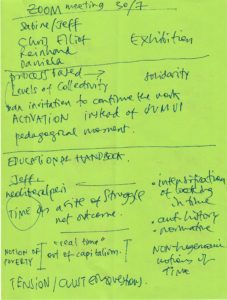 ZOOM meeting 30/7
Sabine/Jeff
Chris Elliot
Exhibition
Reinhard
Daniela
process based → solidarity
Levels of Collectivity
an invitation to continue the work
ACTIVATION instead of
pedagogical moment.
EDUCATIONAL HANDBOOK.
Jeff
TIME as a site of struggle
not outcome.
NOTION OF POVERTY
"real time"
out of capitalism.
• intensification of looking in time
• anti history
• normative
NON-hegemonic
notions of
TIME
TENSION/